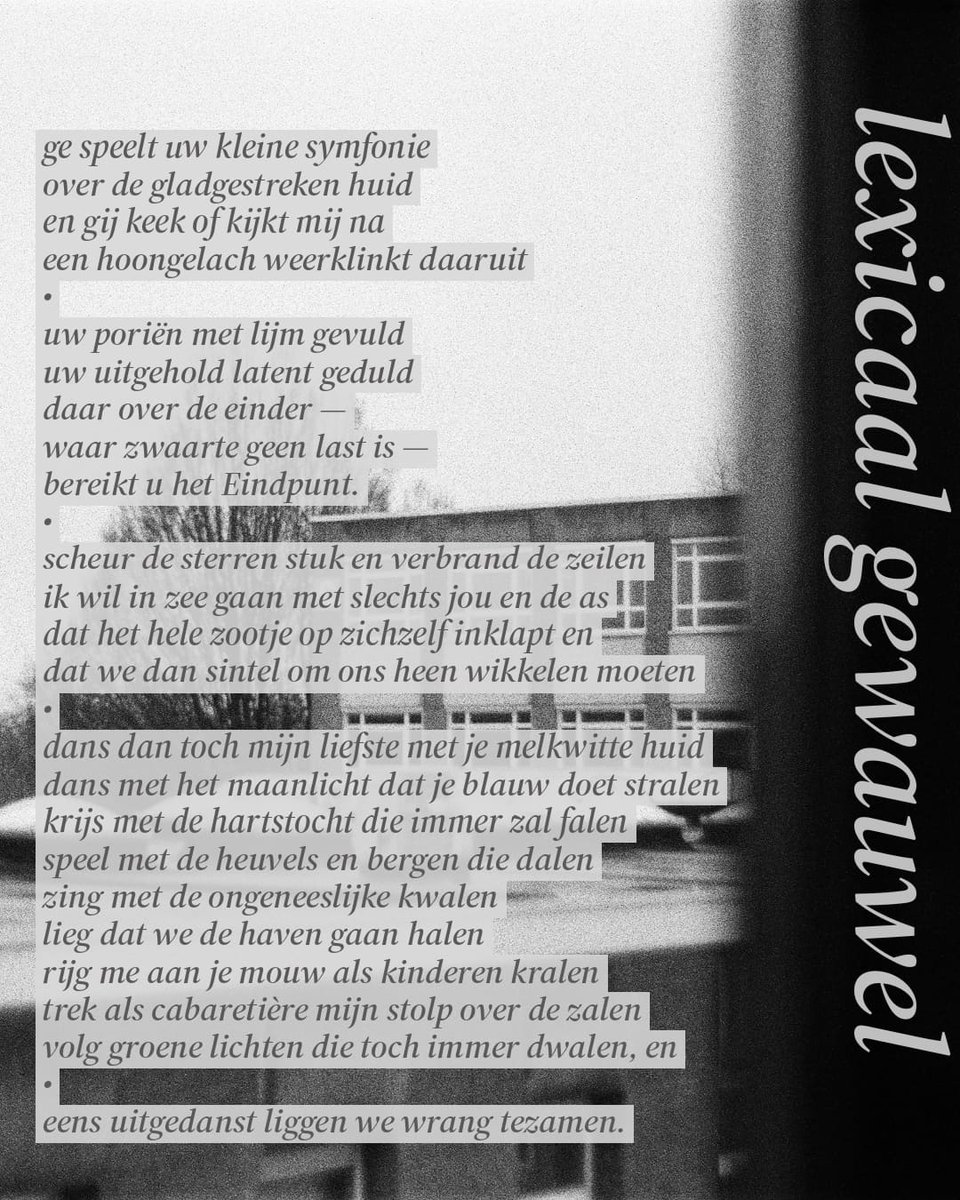 ge speelt uw kleine symfonie
over de gladgestreken huid
en gij keek of kijkt mij na
een hoongelach weerklinkt daaruit
•
uw poriën met lijm gevuld
uw uitgehold latent geduld
daar over de einder —
waar zwaarte geen last is —
bereikt u het Eindpunt.
•
scheur de sterren stuk en verbrand de zeilen
ik wil in zee gaan met slechts jou en de as
dat het hele zootje op zichzelf inklapt en
dat we dan sintel om ons heen wikkelen moeten
•
dans dan toch mijn liefste met je melkwitte huid
dans met het maanlicht dat je blauw doet stralen
krijs met de hartstocht die immer zal falen
speel met de heuvels en bergen die dalen
zing met de ongeneeslijke kwalen
lieg dat we de haven gaan halen
rijg me aan je mouw als kinderen kralen
trek als cabaretière mijn stolp over de zalen
volg groene lichten die toch immer dwalen, en
•
eens uitgedanst liggen we wrang tezamen.
lexicaal gewauwel